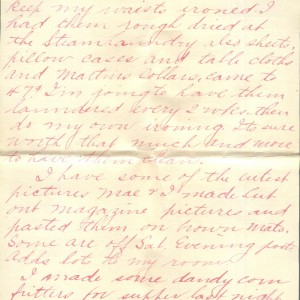 keep my waists ironed. I
had them rough dried at
the Steam laundry also sheets,
pillow cases and table cloths
and Mattress Covers, came to
47¢ I'm going to have them
laundered every 2 wks. then
do my own ironing. Its sure
worth that much and more
to have them clean.
I have some of the cutest
pictures Mae & I made. Cut
out magazine pictures and
pasted them on brown mats.
Some are off Sat. Evening post
adds lots to my room.
I made some dandy corn
fritters for supper last night